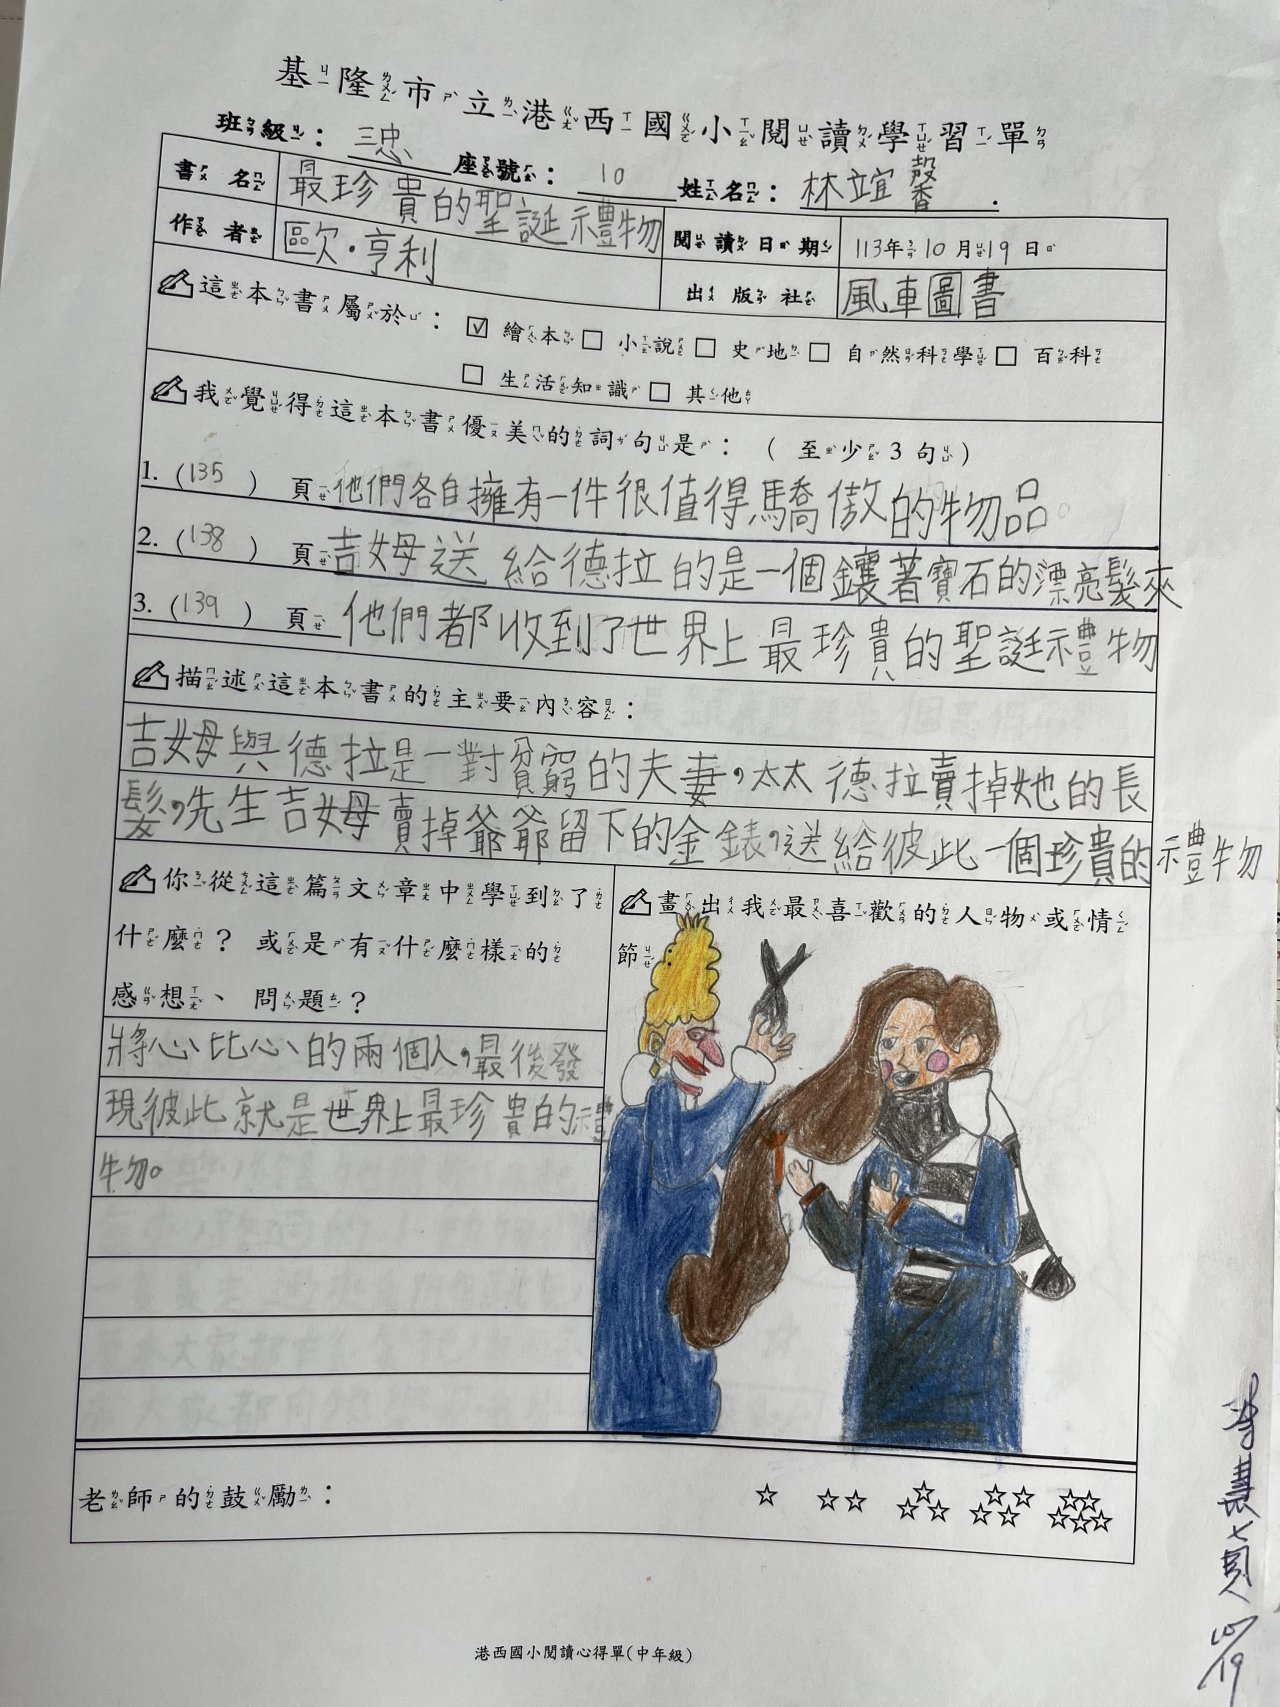 基隆市立港西國小閱讀學習單
班級：三忠 座號：10 姓名：林立宜馨
書名 最珍貴的聖誕禮物
作者 歐·亨利
閱讀日期 113年10月19日
出版社 風車圖書
這本書屬於：☑繪本 □小說 □史地 □自然科學 □百科
□生活知識 □其他
我覺得這本書優美的詞句是：(至少3句)
1. (135) 頁 他們各自擁有一件很值得驕傲的物品。
2. (138) 頁 吉姆送給德拉的是一個鑲著寶石的漂亮髮夾
3. (139) 頁 他們都收到了世界上最珍貴的聖誕禮物
描述這本書的主要內容：
吉姆與德拉是一對貧窮的夫妻，太太德拉賣掉她的長
髮，先生吉姆賣掉爺爺留下的金錶，送給彼此一個珍貴的禮物
你從這篇文章中學到了
什麼？或是有什麼樣的
感想、問題？
將心比心的兩個人，最後發
現彼此就是世界上最珍貴的禮
物。
畫出我最喜歡的人物或情
節
老師的鼓勵：☆ ☆☆ ☆☆☆ ☆☆☆☆ ☆☆☆☆☆
10/19
港西國小閱讀心得單(中年級)